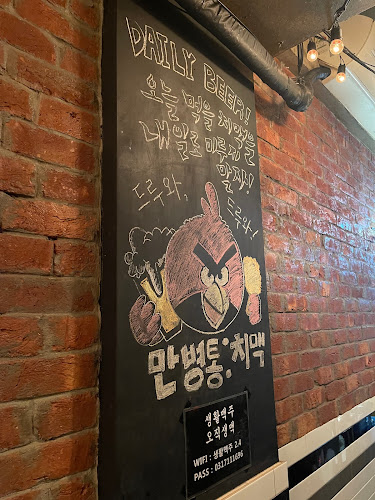 DAILY BEER!
오늘 먹을 치맥을
내일로 미루지
말자!!
드루와,
드루와!
만병통:치맥
생활맥주
오직생맥
WIFI : 생활맥주 2.4
PASS : 0317111696